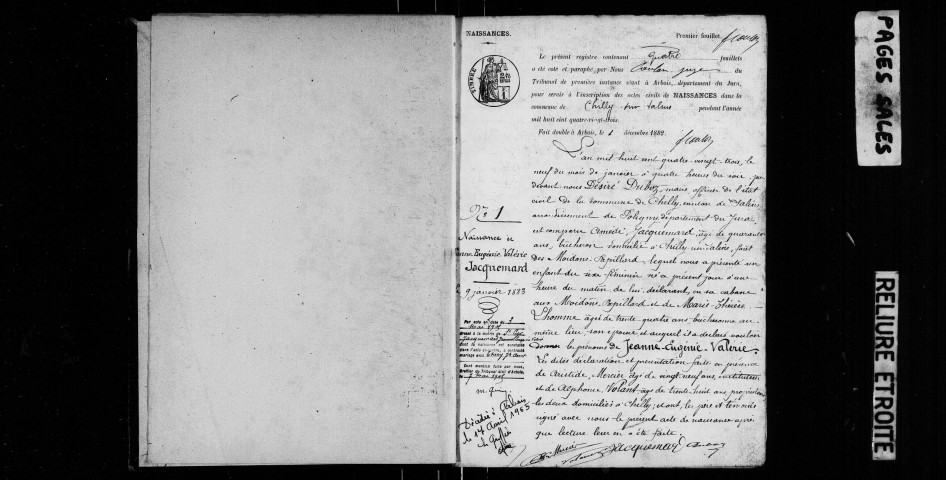 NAISSANCES.
Premier feuillet.
Le présent registre contenant quatre feuillets
a été coté et paraphé par Nous juge du
Tribunal de première instance séant à Arbois, département du Jura,
pour servir à l'inscription des actes civils de NAISSANCES dans la
commune de Chilly sur Salins pendant l'année
mil huit cent quatre-vingt-trois.
Fait double à Arbois, le 1 décembre 1882.
TIMBRE
L'an mil huit cent quatre-vingt-trois, le
neuf du mois de janvier à quatre heures du soir, par
devant nous Désiré Duboz, maire, officier de l'état
civil de la commune de Chilly, canton de Salins,
arrondissement de Poligny, département du Jura
est comparu Amédé Jacquemard, âgé de quarante
ans, bûcheron domicilié à Chilly-sur-Salins, forêt
des Moidons-Papillard, lequel nous a présenté un
enfant du sexe féminin né à présent jour à une
heure du matin de lui déclarant, en sa cabane
aux Moidons-Papillard et de Marie-Thérèse
Lhomme âgée de trente-quatre ans, bucheronne au
même lieu, son épouse et auquel il a déclaré vouloir
donner les prénoms de Jeanne-Eugénie-Valérie.
Les dites déclaration et présentation faites en présence
de Aristide Mercier, âgé de vingt-neuf ans, instituteur
et de Alphonse Volant âgé de trente-huit ans, propriétaire
les deux domiciliés à Chilly; et ont, les père et témoins
signé avec nous le présent acte de naissance après
que lecture leur en a été faite.
Mercier Volant Jacquemard Duboz
No 1
Naissance de
Jeanne Eugénie Valérie
Jacquemard
9 janvier 1883
Par acte en date du
mai
Jacquemard Jeanne Eugénie
dont la naissance est constatée
dans l'acte ci-contre, a contracté
mariage avec
Dont mention faite par nous,
Greffier du Tribunal civil d'Arbois,
Décédée à Arbois
le 14 Avril 1965
Le Greffier
PAGES SALES
RELIURE ETROITE